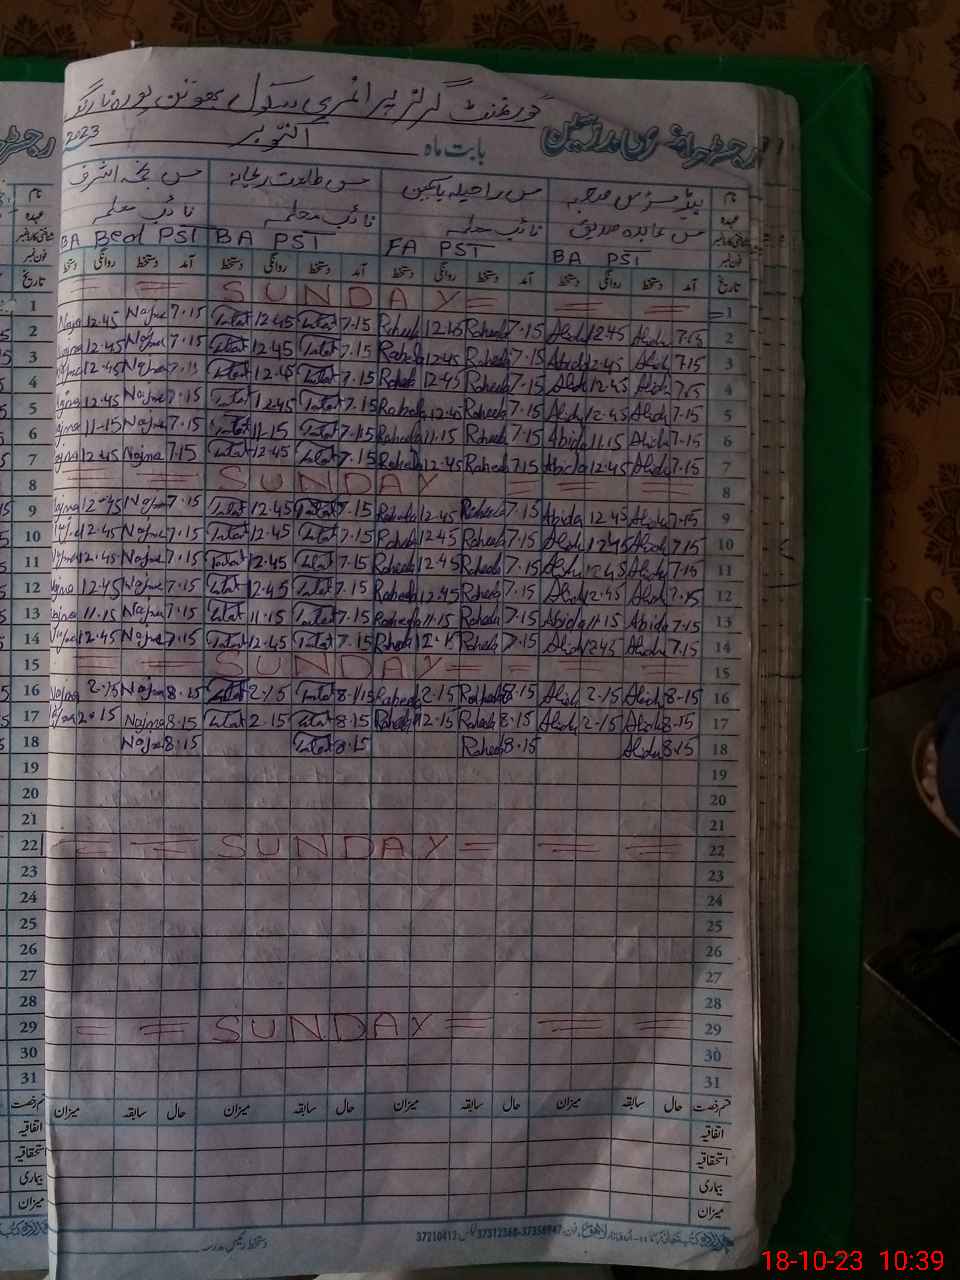 گورنمنٹ گرلز پرائمری سکول
رجسٹر حاضری مدرسین
بابت ماہ اکتوبر 2023
نام ہیڈمسٹریس مس راحیلہ یاسمین مس طلعت ریحانہ مس نجمہ اشرف
عہدہ مس عابدہ صدیق نائب معلمہ نائب معلمہ نائب معلمہ
BA PST FA PST BA PST BA Bed PST
تاریخ آمد دستخط روانگی دستخط آمد دستخط روانگی دستخط آمد دستخط روانگی دستخط آمد دستخط روانگی دستخط
= = SUNDAY = = = 1
Najma 12.45 Najma 7.15 Talat 12.45 Talat 7.15 Raheela 12.45 Raheela 7.15 Abida 12.45 Abida 7.15 2
Najma 12.45 Najma 7.15 Talat 12.45 Talat 7.15 Raheela 12.45 Raheela 7.15 Abida 12.45 Abida 7.15 3
Najma 12.45 Najma 7.15 Talat 12.45 Talat 7.15 Raheela 12.45 Raheela 7.15 Abida 12.45 Abida 7.15 4
Najma 12.45 Najma 7.15 Talat 12.45 Talat 7.15 Raheela 12.45 Raheela 7.15 Abida 12.45 Abida 7.15 5
Najma 11-15 Najma 7.15 Talat 11.15 Talat 7.15 Raheela 11.15 Raheela 7.15 Abida 11.15 Abida 7-15 6
Najma 12.45 Najma 7.15 Talat 12.45 Talat 7.15 Raheela 12.45 Raheela 7.15 Abida 12.45 Abida 7.15 7
= = SUNDAY = = 8
Najma 12.45 Najma 7.15 Talat 12.45 Talat 7.15 Raheela 12.45 Raheela 7.15 Abida 12.45 Abida 7.15 9
Najma 12.45 Najma 7.15 Talat 12.45 Talat 7.15 Raheela 12.45 Raheela 7.15 Abida 12.45 Abida 7.15 10
Najma 12.45 Najma 7.15 Talat 12.45 Talat 7.15 Raheela 12.45 Raheela 7.15 Abida 12.45 Abida 7.15 11
Najma 12.45 Najma 7.15 Talat 12.45 Talat 7.15 Raheela 12.45 Raheela 7.15 Abida 12.45 Abida 7.15 12
Najma 11.15 Najma 7.15 Talat 11.15 Talat 7.15 Raheela 11.15 Raheela 7.15 Abida 11.15 Abida 7.15 13
Najma 12.45 Najma 7.15 Talat 12.45 Talat 7.15 Raheela Raheela 7.15 Abida 12.45 Abida 7.15 14
= = SUNDAY = = = = 15
Najma 2.15 Najma 8.15 Talat 2.15 Talat 8.15 Raheela 2.15 Raheela 8.15 Abida 2.15 Abida 8.15 16
Najma 2.15 Najma 8.15 Talat 2.15 Talat 8.15 Raheela 2.15 Raheela 8.15 Abida 2-15 Abida 8.15 17
Najma 8.15 Talat 8.15 Raheela 8.15 Abida 8.15 18
19
20
21
= = SUNDAY = = = 22
23
24
25
26
27
28
= = SUNDAY = = = 29
30
31
قسم رخصت حال سابقہ میزان حال سابقہ میزان حال سابقہ میزان حال سابقہ میزان
اتفاقیہ
استحقاقیہ
بیماری
میزان
37312360-37358947 37210412
دستخط رئیس مدرسہ
18-10-23 10:39